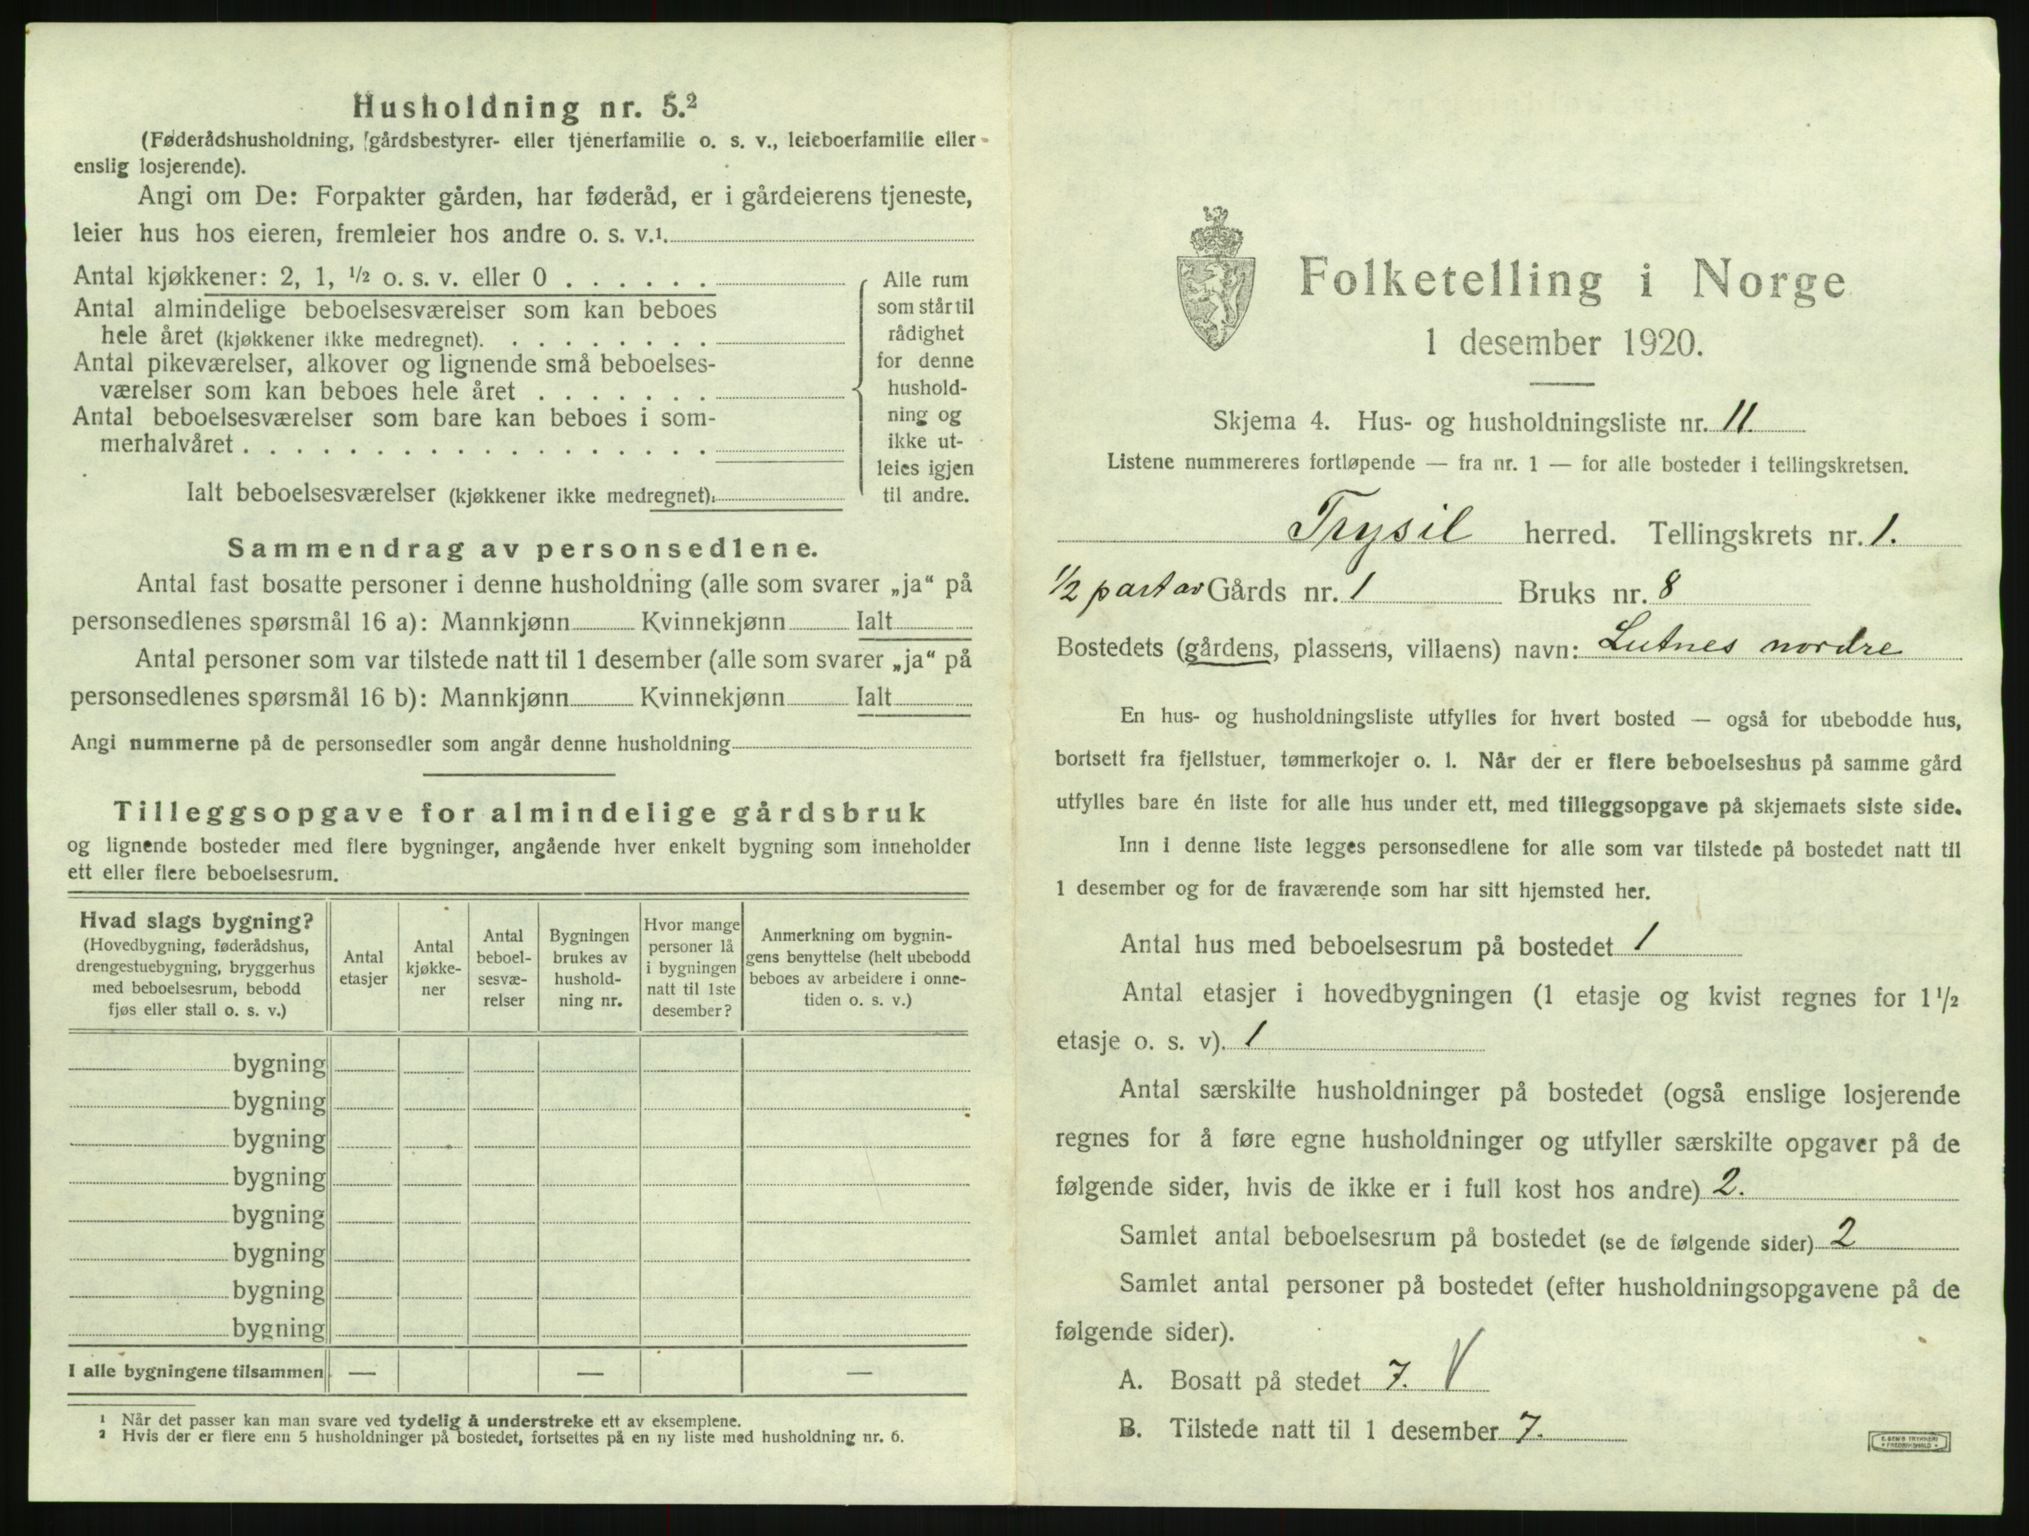 Husholdning nr. 5.²
(Føderådshusholdning, gårdsbestyrer- eller tjenerfamilie o. s. v., leieboerfamilie eller
enslig losjerende).
Angi om De: Forpakter gården, har føderåd, er i gårdeierens tjeneste,
leier hus hos eieren, fremleier hos andre o. s. v.¹.
Antal kjøkkener: 2, 1, ½ o. s. v. eller 0 . . . . . .
Antal almindelige beboelsesværelser som kan beboes
hele året (kjøkkener ikke medregnet). . . . . . . . .
Antal pikeværelser, alkover og lignende små beboelses-
værelser som kan beboes hele året . . . . . . .
Antal beboelsesværelser som bare kan beboes i som-
merhalvåret . . . . . . . . . . . . . . . . . .
Ialt beboelsesværelser (kjøkkener ikke medregnet):
Alle rum
som står til
rådighet
for denne
hushold-
ning og
ikke ut-
leies igjen
til andre.
Sammendrag av personsedlene.
Antal fast bosatte personer i denne husholdning (alle som svarer „ja“ på
personsedlenes spørsmål 16 a): Mannkjønn Kvinnekjønn Ialt
Antal personer som var tilstede natt til 1 desember (alle som svarer „ja“ på
personsedlenes spørsmål 16 b): Mannkjønn Kvinnekjønn Ialt
Angi nummerne på de personsedler som angår denne husholdning
Tilleggsopgave for almindelige gårdsbruk
og lignende bosteder med flere bygninger, angående hver enkelt bygning som inneholder
ett eller flere beboelsesrum.
Hvad slags bygning?
(Hovedbygning, føderådshus,
drengestuebygning, bryggerhus
med beboelsesrum, bebodd
fjøs eller stall o. s. v.)
Antal
etasjer
Antal
kjøkke-
ner
Antal
beboel-
sesvæ-
relser
Bygningen
brukes av
hushold-
ning nr.
Hvor mange
personer lå
i bygningen
natt til 1ste
desember?
Anmerkning om bygnin-
gens benyttelse (helt ubebodd
beboes av arbeidere i onne-
tiden o. s. v.)
bygning
bygning
bygning
bygning
bygning
bygning
bygning
bygning
I alle bygningene tilsammen — — —
¹ Når det passer kan man svare ved tydelig å understreke ett av eksemplene.
² Hvis der er flere enn 5 husholdninger på bostedet, fortsettes på en ny liste med husholdning nr. 6.
Folketelling i Norge
1 desember 1920.
Skjema 4. Hus- og husholdningsliste nr. 11.
Listene nummereres fortløpende — fra nr. 1 — for alle bosteder i tellingskretsen.
Trysil herred. Tellingskrets nr. 1.
1/2 part av Gårds nr. 1 Bruks nr. 8
Bostedets (gårdens, plassens, villaens) navn: Lutnes nordre
En hus- og husholdningsliste utfylles for hvert bosted — også for ubebodde hus,
bortsett fra fjellstuer, tømmerkojer o. l. Når der er flere beboelseshus på samme gård
utfylles bare én liste for alle hus under ett, med tilleggsopgave på skjemaets siste side.
Inn i denne liste legges personsedlene for alle som var tilstede på bostedet natt til
1 desember og for de fraværende som har sitt hjemsted her.
Antal hus med beboelsesrum på bostedet 1
Antal etasjer i hovedbygningen (1 etasje og kvist regnes for 1½
etasje o. s. v). 1
Antal særskilte husholdninger på bostedet (også enslige losjerende
regnes for å føre egne husholdninger og utfyller særskilte opgaver på de
følgende sider, hvis de ikke er i full kost hos andre) 2.
Samlet antal beboelsesrum på bostedet (se de følgende sider) 2
Samlet antal personer på bostedet (efter husholdningsopgavene på de
følgende sider).
A. Bosatt på stedet 7. V
B. Tilstede natt til 1 desember 7.